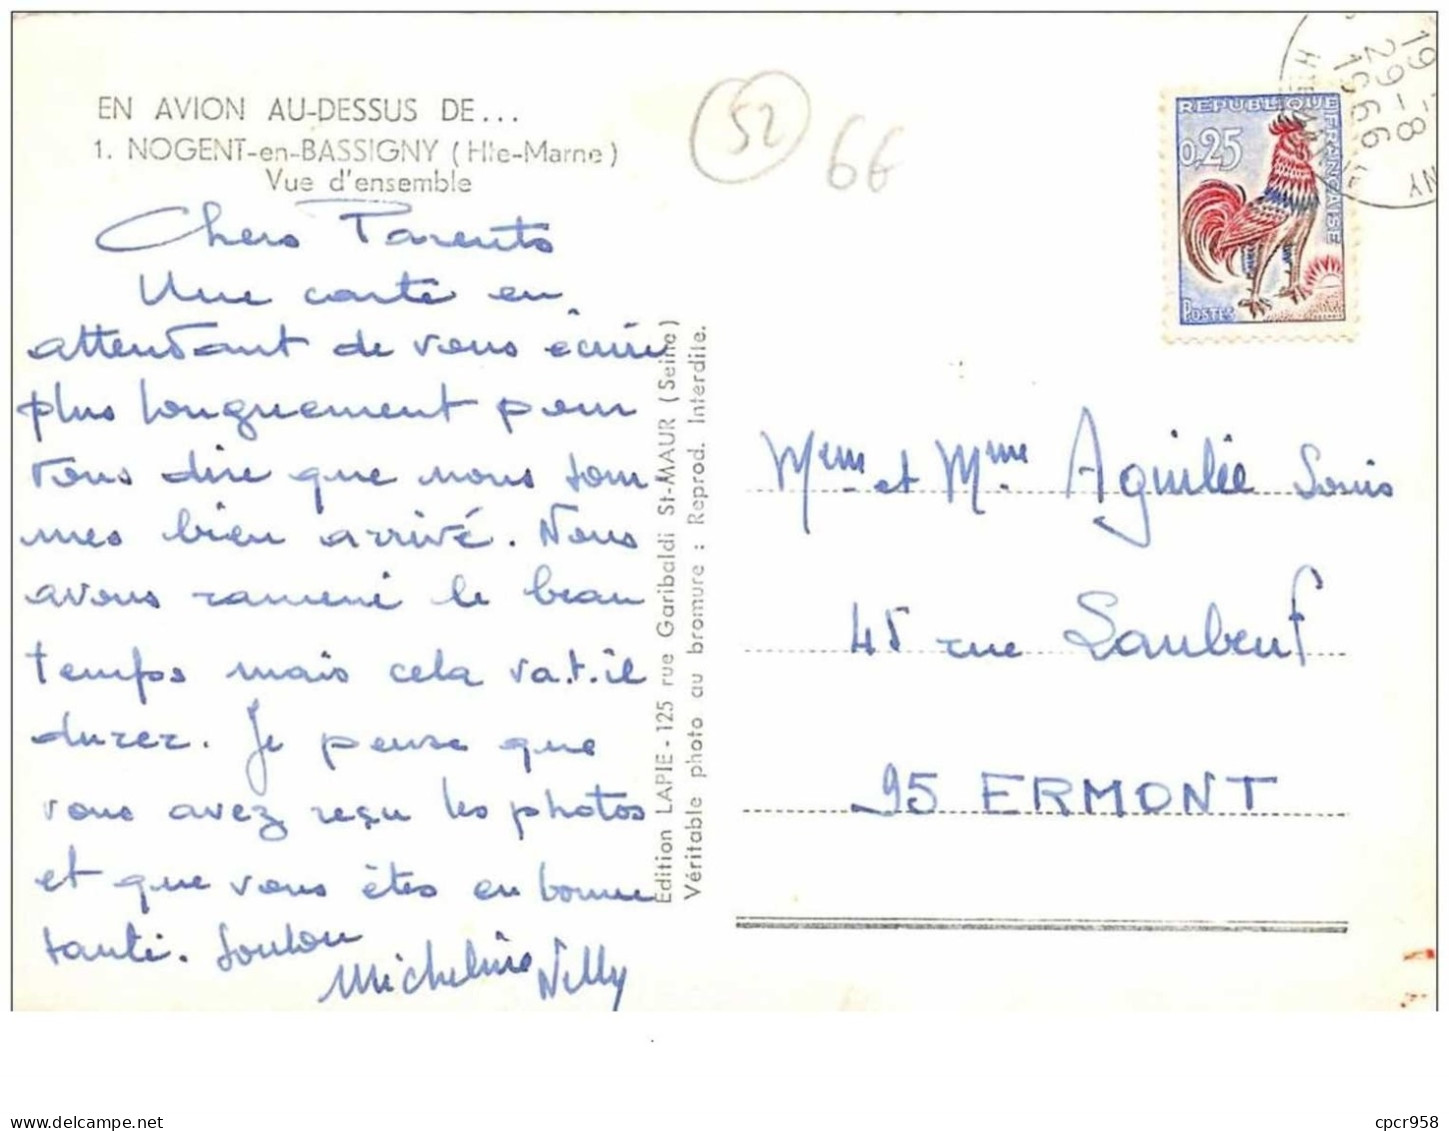 EN AVION AU-DESSUS DE...
1. NOGENT-en-BASSIGNY (Hte-Marne)
Vue d'ensemble
52
66
Chers Parents
Une carte en
attendant de vous écrire
plus longuement pour
vous dire que nous som-
mes bien arrivé. Nous
avons ramené le beau
temps mais cela va.t.il
durer. Je pense que
vous avez reçu les photos
et que vous êtes en bonne
santé.
Micheline Willy
Edition LAPIE - 125 rue Garibaldi St-MAUR (Seine)
Véritable photo au bromure : Reprod. Interdite.
REPUBLIQUE FRANÇAISE
0,25
POSTES
19
29-8
1966
NY
et Mme Louis
45 rue Saubeuf
95 ERMONT
cpcr958